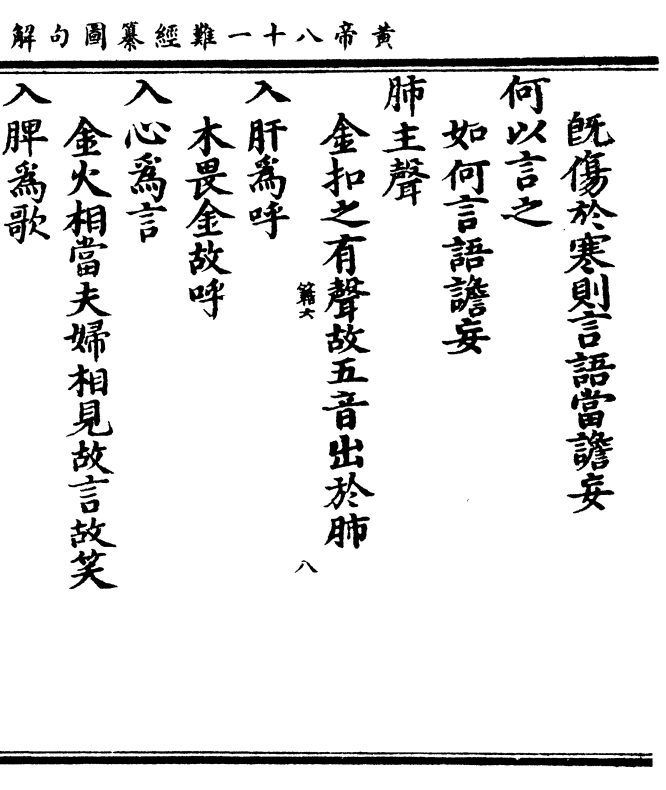 黃帝八十一難經纂圖句解
既傷於寒則言語當譫妄
何以言之
如何言語譫妄
肺主聲
金扣之有聲故五音出於肺
籍六
八
入肝爲呼
木畏金故呼
入心爲言
金火相當夫婦相見故言故笑
入脾爲歌